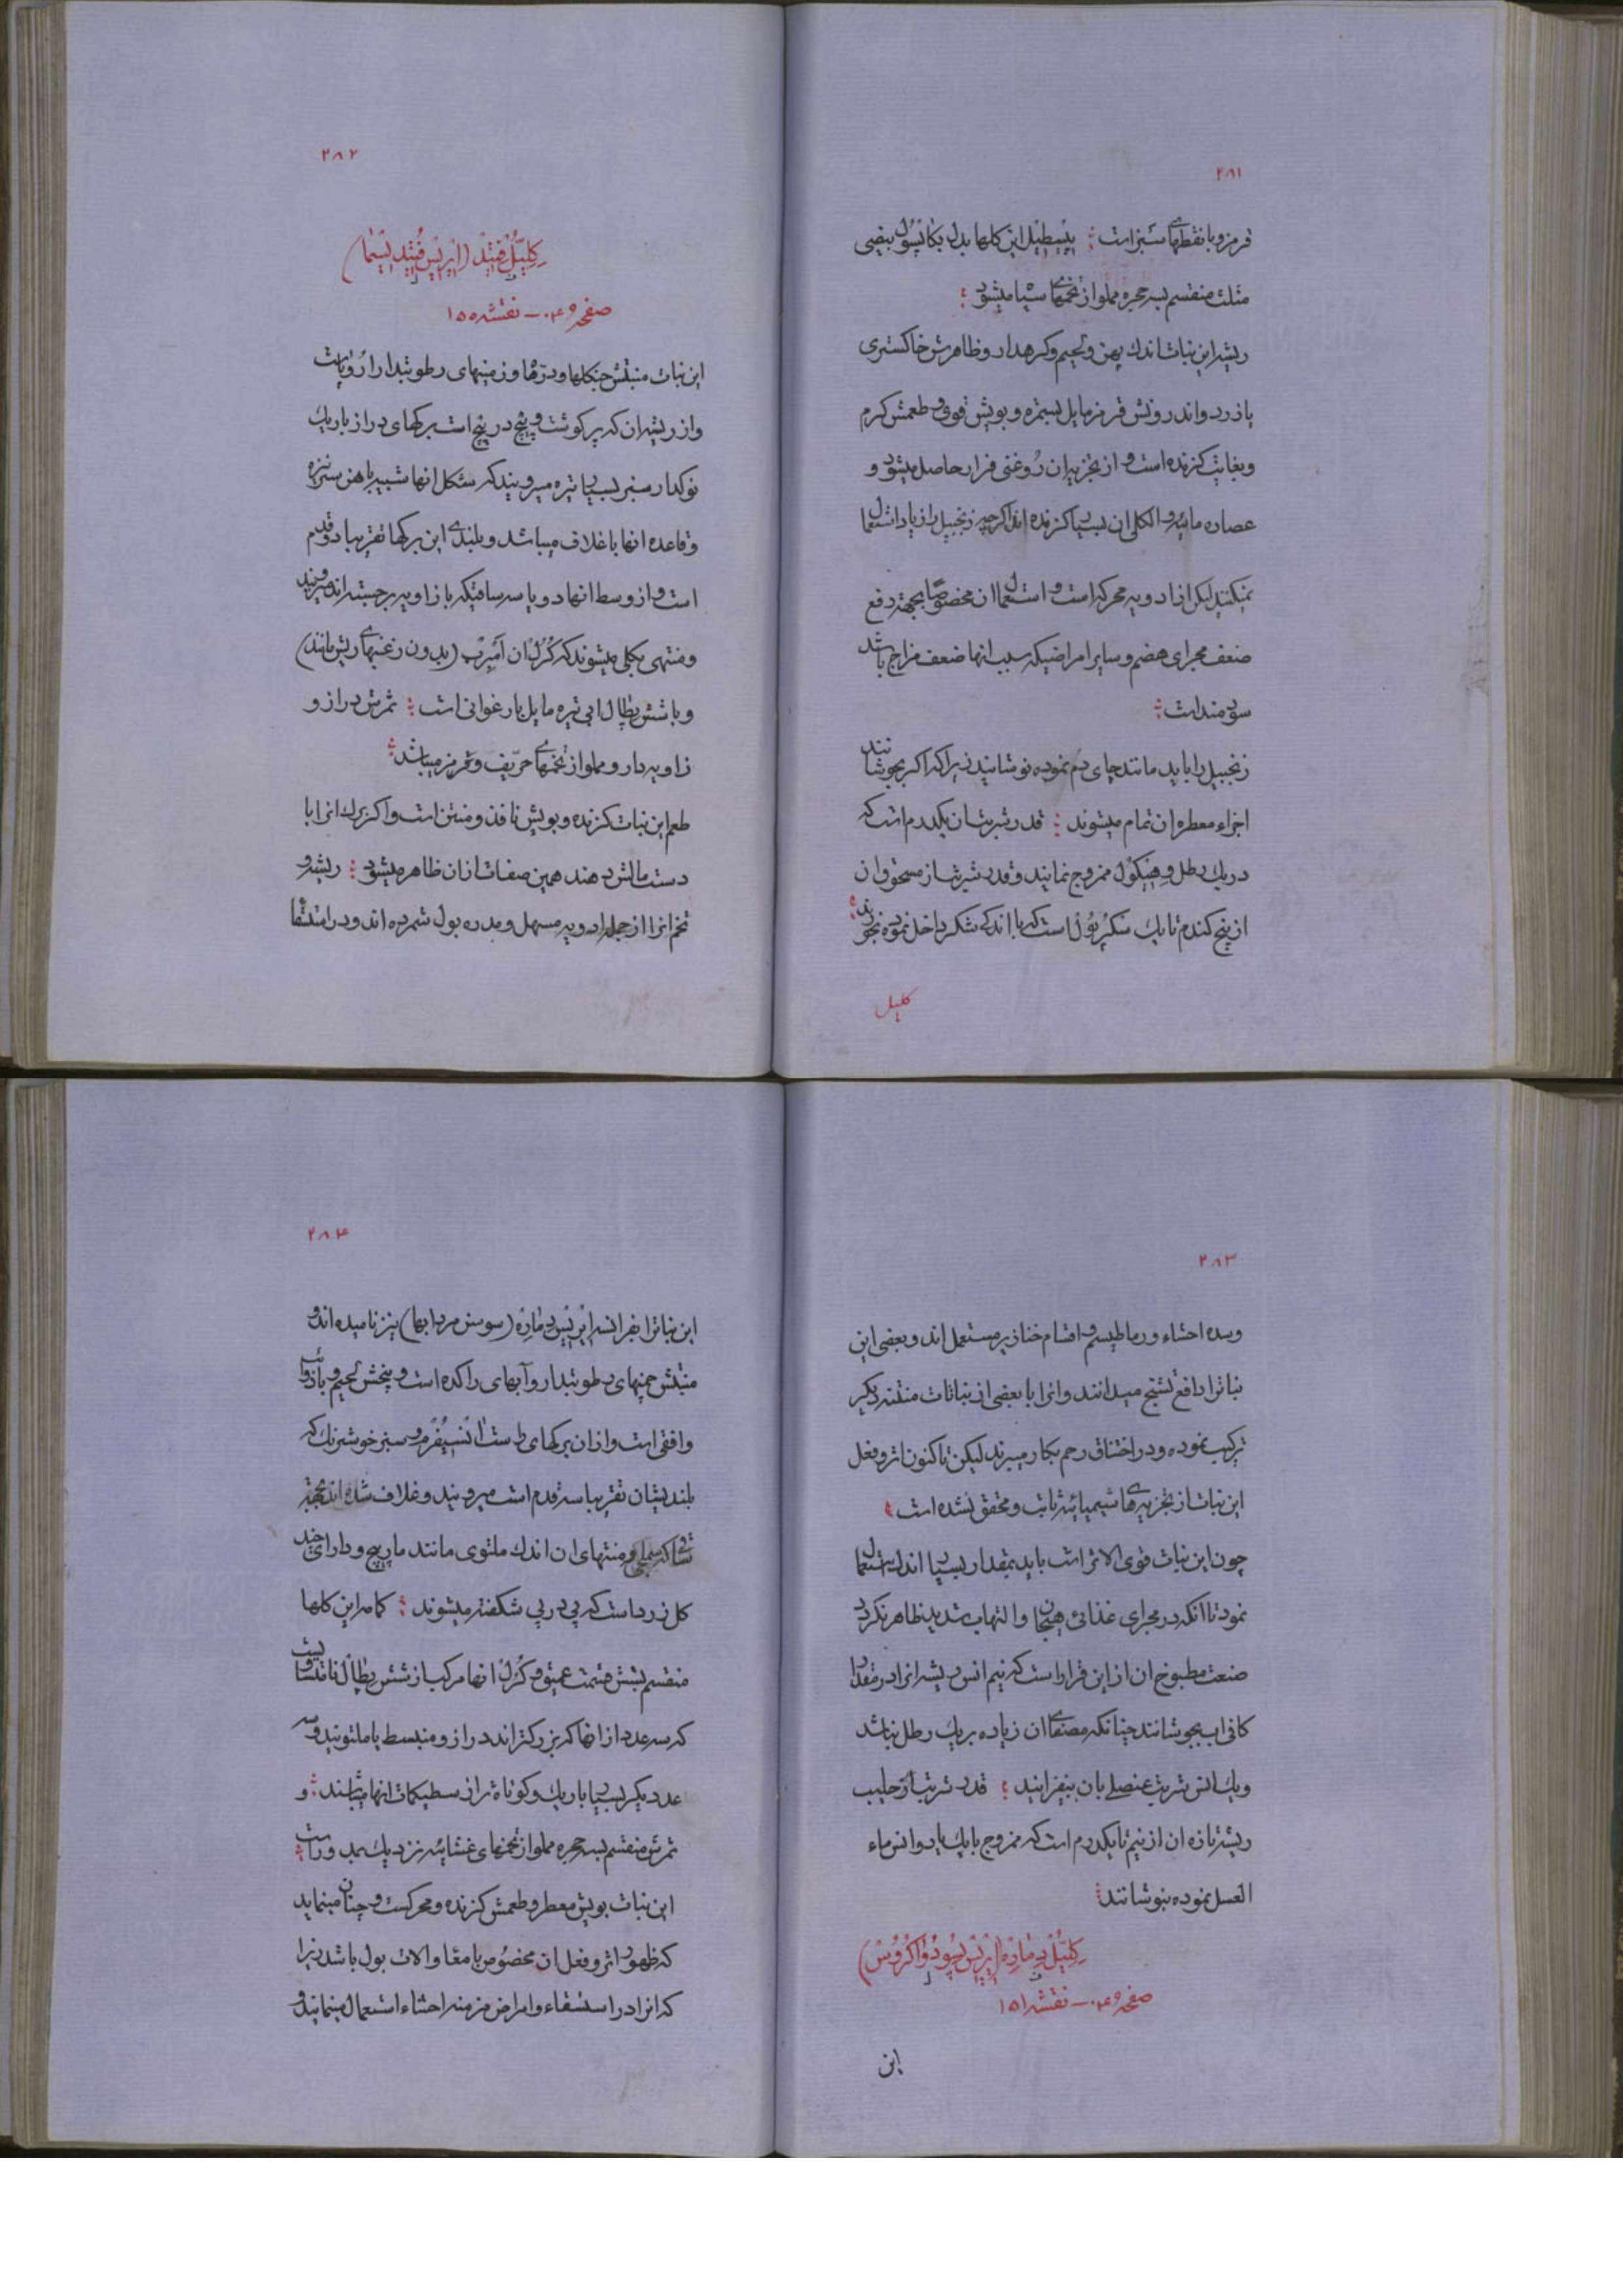 ۲۸۱
قرمز و با نقطهای سبز است : پیسطیل این کلها بدل بکاپسول بیضی
مثلث منقسم بسه حجره مملو از تخمهای سیا میشود :
ریشه این نباتات اندك پهن و لحیم و کره دار و ظاهرش خاکستری
یا زرد و اندرونش قرمز مایل بسمره و بویش قوی و طعمش کرم
و بغایت کزنده است و از تجزیه ان روغنی فرار حاصل میشود و
عصاره مائیه و الکلی ان بسیا کزنده اند اکرچه زنجبیل را زیاد استعمال
نمیکنند لیکن از ادویه محرکه است و استعمال ان مخصوصا بجهته دفع
ضعف مجرای هضم و سایر امراضیکه سبب انها ضعف مزاج باشد
سودمند است :
زنجبیل را باید مانند چای دم نموده نوشانید زیرا که اکر بجوشانند
اجزاء معطره ان تمام میشوند : قدر شربتشان یکدرم است که
در یك رطل و هیکول ممزوج نمایند و قدر شربتش از مسحوق ان
از پنج کندم تا یك سکرپول است که با اندکی شکر داخل نموده بخورند
کلیل
۲۸۲
کلیل فتید (ایریس فتیدیسیما)
صفحه ۴۰۹ ـ نقشه ۱۵۵
این نبات منبتش جنکلها و درها و زمینهای رطوبتدار اروپاست
و از ریشه ان که پر کوشت و پیچ در پیچ است برکهای دراز باریك
نوکدار سبز بسیا تیره میرویند که شکل انها شبیه باهن سر نیزه
و قاعده انها با غلاف میباشد و بلندی این برکها تقریبا دو قدم
است و از وسط انها دو یا سه ساقیکه با زاویه برجسته اند میرویند
و منتهی بکلی میشوند که کرل ان امبرب (بدون زغبهای ریش مانند)
و با شش پطال ابی تیره مایل بارغوانی است : ثمرش دراز و
زاویه دار و مملو از تخمهای حریف و قرمز میباشد :
طعم این نبات کزنده و بویش نافذ و منتن است و اکر برك انرا با
دست مالش دهند همین صفات از ان ظاهر میشود : ریشه و
تخم انرا از جمله ادویه مسهل و مدره بول شمرده اند و در استسقا
۲۸۳
و سده احشاء و رماطیسم و اقسام خنازیر مستعمل اند و بعضی این
نباترا دافع تشنج میدانند و انرا با بعضی از نباتات منتنه دیکر
ترکیب نموده و در اختناق رحم بکار میبرند لیکن تا کنون اثر و فعل
این نبات از تجزیه های شیمیائیه ثابت و محقق نشده است :
چون این نبات قوی الاثر است باید بمقدار بسیا اندك استعمال
نمود تا انکه در مجرای غذائی هیجان و التهاب شدید ظاهر نکردد
صنعت مطبوخ ان از این قرار است که نیم انس ریشه انرا در مقدار
کافی اب بجوشانند چنانکه مصفای ان زیاده بر یك رطل نباشد
و یك انس شربت عنصلی بان بیفزایند : قدر شربت از حلیب
ریشه تازه ان از نیم تا یکدرم است که ممزوج با یك یا دو انس ماء
العسل نموده بنوشانند :
کلیل د ماره (ایریس پسودواکروس)
صفحه ۴۰۹ ـ نقشه ۱۵۱
این
۲۸۴
این نباترا بفرانسه ایریس د ماره (سوسن مردابها) نیز نامیده اند و
منبتش چمنهای رطوبتدار و آبهای راکده است و بیخش لحیم و با ذوائب
و افقی است و از ان برکهای راست انسیفرم و سبز خوشرنك که
بلندیشان تقریبا سه قدم است میرویند و غلاف شده اند بجهته
ساقی که منتهای ان اندك ملتوی مانند مارپیچ و دارای چند
کل زرد است که پی در پی شکفته میشوند : کامه این کلها
منقسم بشش قسمت عمیق و کرل انها مرکب از شش پطال نا متساویست
که سه عدد از انها که بزرکتر اند دراز و منبسط یا ملتویند و سه
عدد دیکر بسیا باریك و کوتاه تر از سطیکمات انها میباشند : و
ثمرش منقسم بسه حجره مملو از تخمهای غشائیه نزدیك بمدور است :
این نبات بویش معطر و طعمش کزنده و محرکست و چنان مینماید
که ظهور اثر و فعل ان مخصوص بامعا و الات بول باشد زیرا
که انرا در استسقاء و امراض مزمنه احشاء استعمال مینمایند و